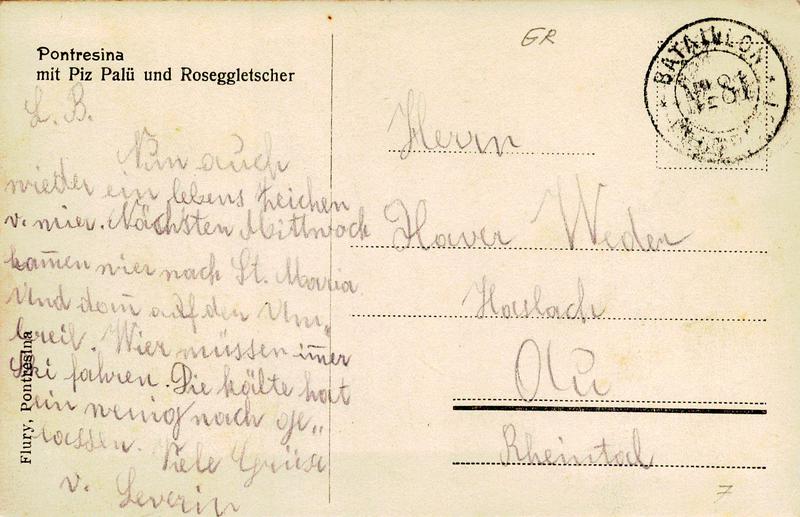 Pontresina
mit Piz Palü und Roseggletscher
GR
BATAILLON
81
L. B.
Nun auch
wieder ein lebens zeichen
v. mier. Nächsten Mittwoch
kam̅en mier nach St. Maria
Und dan̅ auf den Um„
breil. Wier müssen im̅er
Ski fahren. Die kälte hat
ein wenig nach ge„
lassen. Viele Grüse
v. Severin
Herrn
Xaver Weder
Haslach
Au
Rheintal
7
Flury, Pontresina